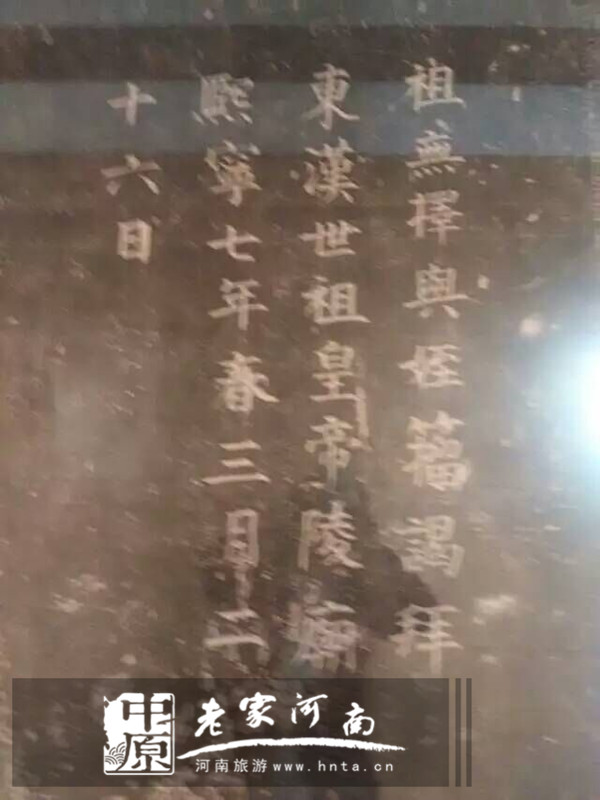 祖無擇與姪謁拜
東漢世祖皇帝陵廟
熙寧七年春三月二
十六日
中原
老家河南
河南旅游 www.hnta.cn